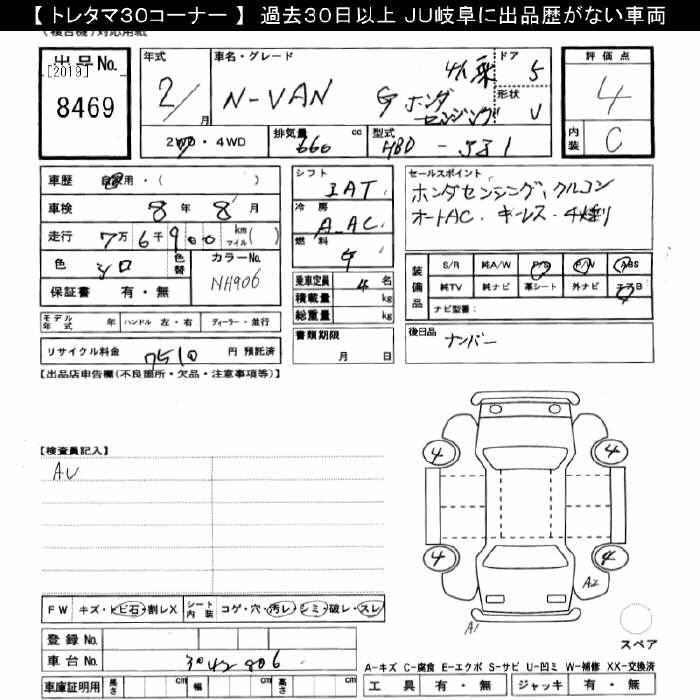 【 トレタマ30コーナー 】 過去30日以上 JU岐阜に出品歴がない車両
(複合機)対応用紙
出品 No.
[2019]
8469
年式
2/
月
車名・グレード
N-VAN G ホンダセンシング 4人乗
ドア
5
形状
V
2WD ・ 4WD
排気量
660 cc
型式
HBD - JJ1
評価点
4
内装
C
車歴 自家用・( )
車検 8年 8月
走行 7万 6千 900 km マイル( )
色 シロ 色替
カラーNo.
NH906
保証書 有・無
モデル年式 年 ハンドル 左・右 ディーラー・並行
リサイクル料金 7510 円 預託済
シフト
IAT
冷房
A.AC
燃料
G
乗車定員 4 名
積載量 kg
総重量 kg
書類期限
月 日
セールスポイント
ホンダセンシング、クルコン
オートAC. キーレス・
装備品
S/R 純A/W P/S P/W ABS
純TV 純ナビ 革シート 外ナビ エアB
ナビ型番:
後日品
ナンバー
【出品店申告欄(不良箇所・欠品・注意事項等)】
【検査員記入】
AU
4 4
4 4
A2
A1
スペア
FW キズ・トビ石・割レX シート内装 コゲ・穴・汚レ・シミ・破レ・スレ
登録 No.
車台 No. 3042806
車庫証明用 長さ cm 幅 cm 高さ cm
A-キズ C-腐食 E-エクボ S-サビ U-凹ミ W-補修 XX-交換済
工具 有・無 ジャッキ 有・無